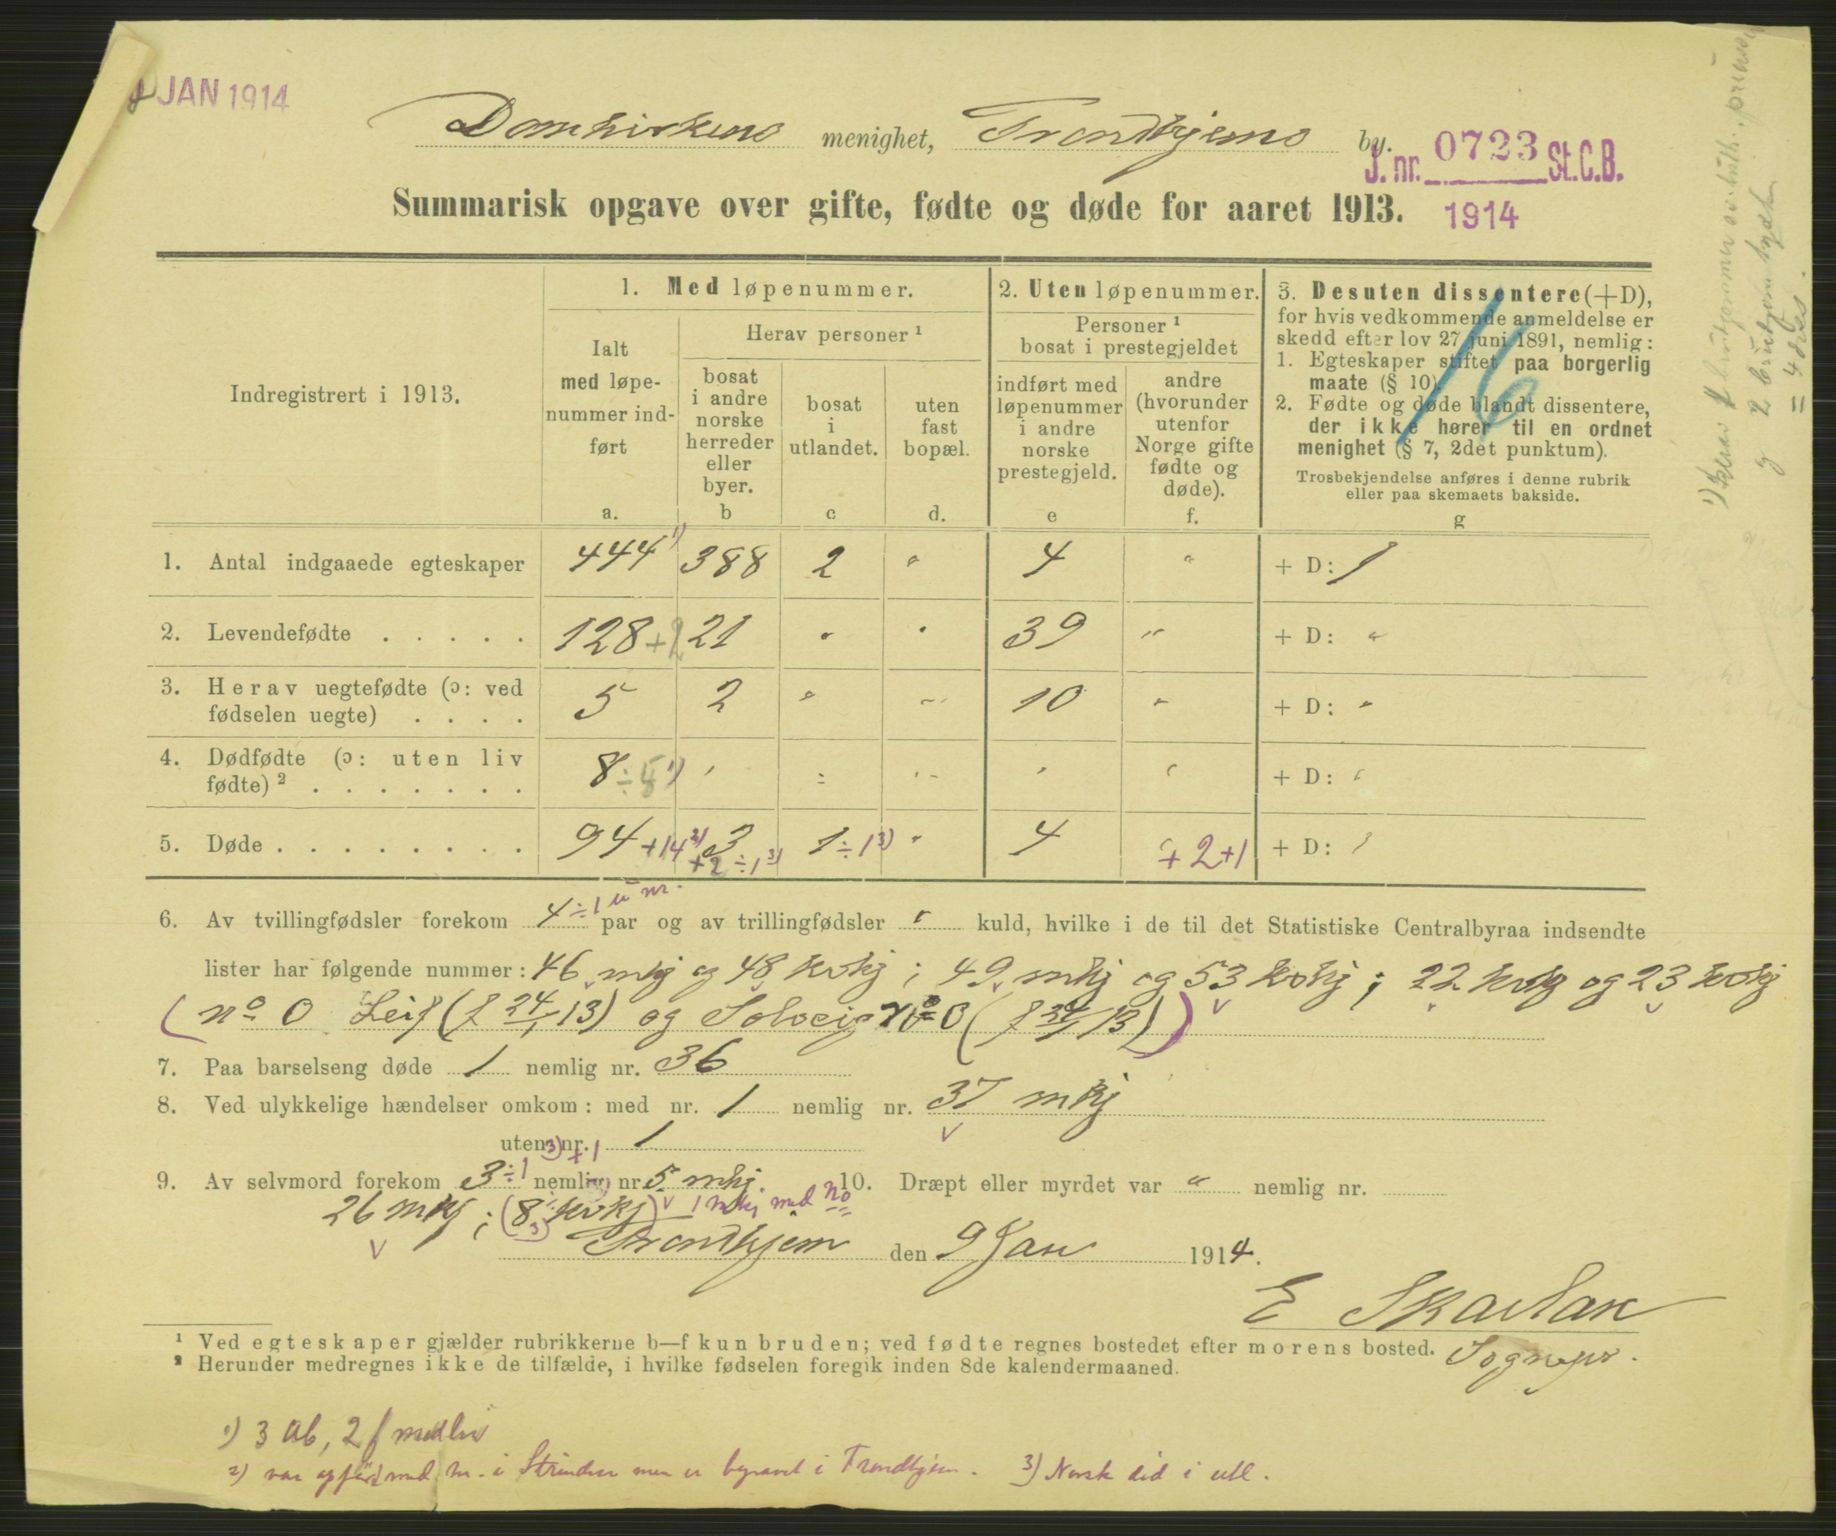 JAN 1914
Domkirkens menighet, Trondhjems by.
J. nr. 0723 St.C.B.
1914
Summarisk opgave over gifte, fødte og døde for aaret 1913.
Indregistrert i 1913.
1. Med løpenummer.
Ialt med løpenummer indført
a.
Herav personer ¹
bosat i andre norske herreder eller byer.
b
bosat i utlandet.
c
uten fast bopæl.
d.
2. Uten løpenummer.
Personer ¹ bosat i prestegjeldet
indført med løpenummer i andre norske prestegjeld.
e
andre (hvorunder utenfor Norge gifte fødte og døde).
f.
3. Desuten dissentere (+D),
for hvis vedkommende anmeldelse er
skedd efter lov 27 juni 1891, nemlig:
1. Egteskaper stiftet paa borgerlig
maate (§ 10).
2. Fødte og døde blandt dissentere,
der ikke hører til en ordnet
menighet (§ 7, 2det punktum).
Trosbekjendelse anføres i denne rubrik
eller paa skemaets bakside.
g
16
1. Antal indgaaede egteskaper 444 ¹) 388 2 " 4 " + D: 1
2. Levendefødte . . . . . 128 +2 21 " " 39 " + D: "
3. Herav uegtefødte (ɔ: ved
fødselen uegte) . . . . 5 2 " " 10 " + D: "
4. Dødfødte (ɔ: uten liv
fødte) ² . . . . . . . 8 ÷5 ¹) " " " " " + D: "
5. Døde . . . . . . . . 94 +14 ²) 3 +2 ÷1 ³) 1 ÷1 ³) " 4 " +2+1 + D: "
6. Av tvillingfødsler forekom 4 ÷1 u nr. par og av trillingfødsler " kuld, hvilke i de til det Statistiske Centralbyraa indsendte
lister har følgende nummer: 46 mkj og 48 kvkj; 49 mkj og 53 kvkj; 22 kvkj og 23 kvkj
(no 0 Leif (f 24/1 13) og Solveig no 0 (f 24/1 13))
7. Paa barselseng døde 1 nemlig nr. 36
8. Ved ulykkelige hændelser omkom: med nr. 1 nemlig nr. 37 mkj
uten nr. 1
³) +1
9. Av selvmord forekom 3 ÷1 nemlig nr 5 mkj. 10. Dræpt eller myrdet var " nemlig nr.
26 mkj; (8 kvkj) 1 mkj med no
³)
Trondhjem den 9 Jan 1914.
E Skavlan
Sognepr.
¹ Ved egteskaper gjælder rubrikkerne b—f kun bruden; ved fødte regnes bostedet efter morens bosted.
² Herunder medregnes ikke de tilfælde, i hvilke fødselen foregik inden 8de kalendermaaned.
¹) 3 Ab, 2 f
²) var opført med nr. i Strinden men er begravet i Trondhjem. ³) Norsk død i utl.
= 4